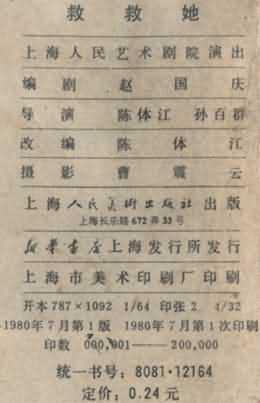 救救她
上海人民艺术剧院演出
编剧 赵国庆
导演 陈体江 孙百群
改编 陈体江
摄影 曹震云
上海人民美术出版社出版
上海长乐路672弄33号
新华书店上海发行所发行
上海市美术印刷厂印刷
开本787×1092 1/64 印张2 4/32
1980年7月第1版 1980年7月第1次印刷
印数 000,001——200,000
统一书号：8081·12164
定价：0.24元